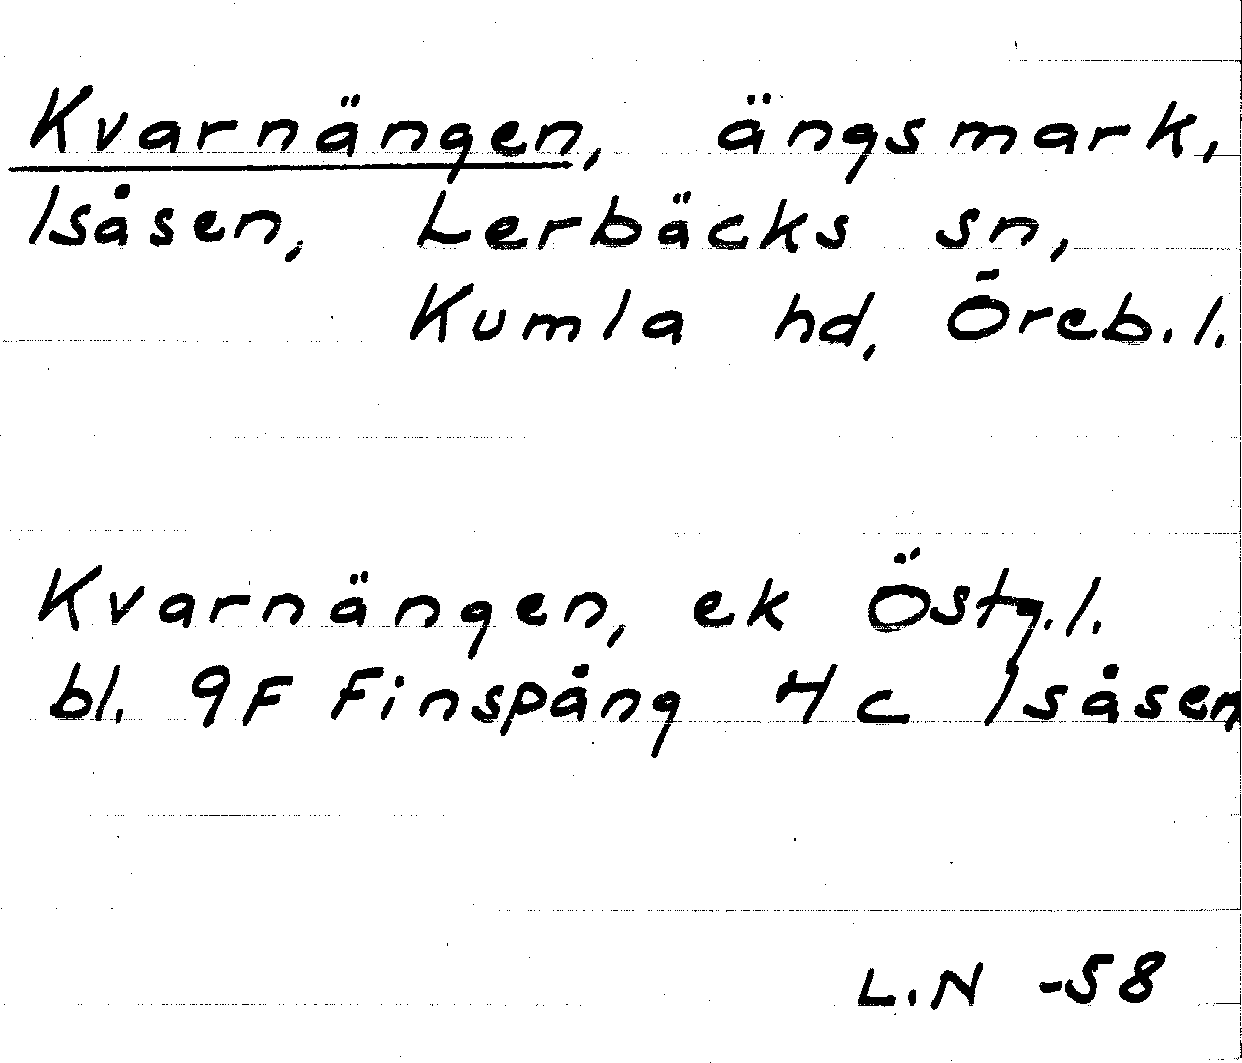 Kvarnängen, ängsmark,
Isåsen, Lerbäcks sn,
Kumla hd, Öreb. l.
Kvarnängen, ek Östg. l.
bl. 9F Finspång 4c Isåsen
L.N -58